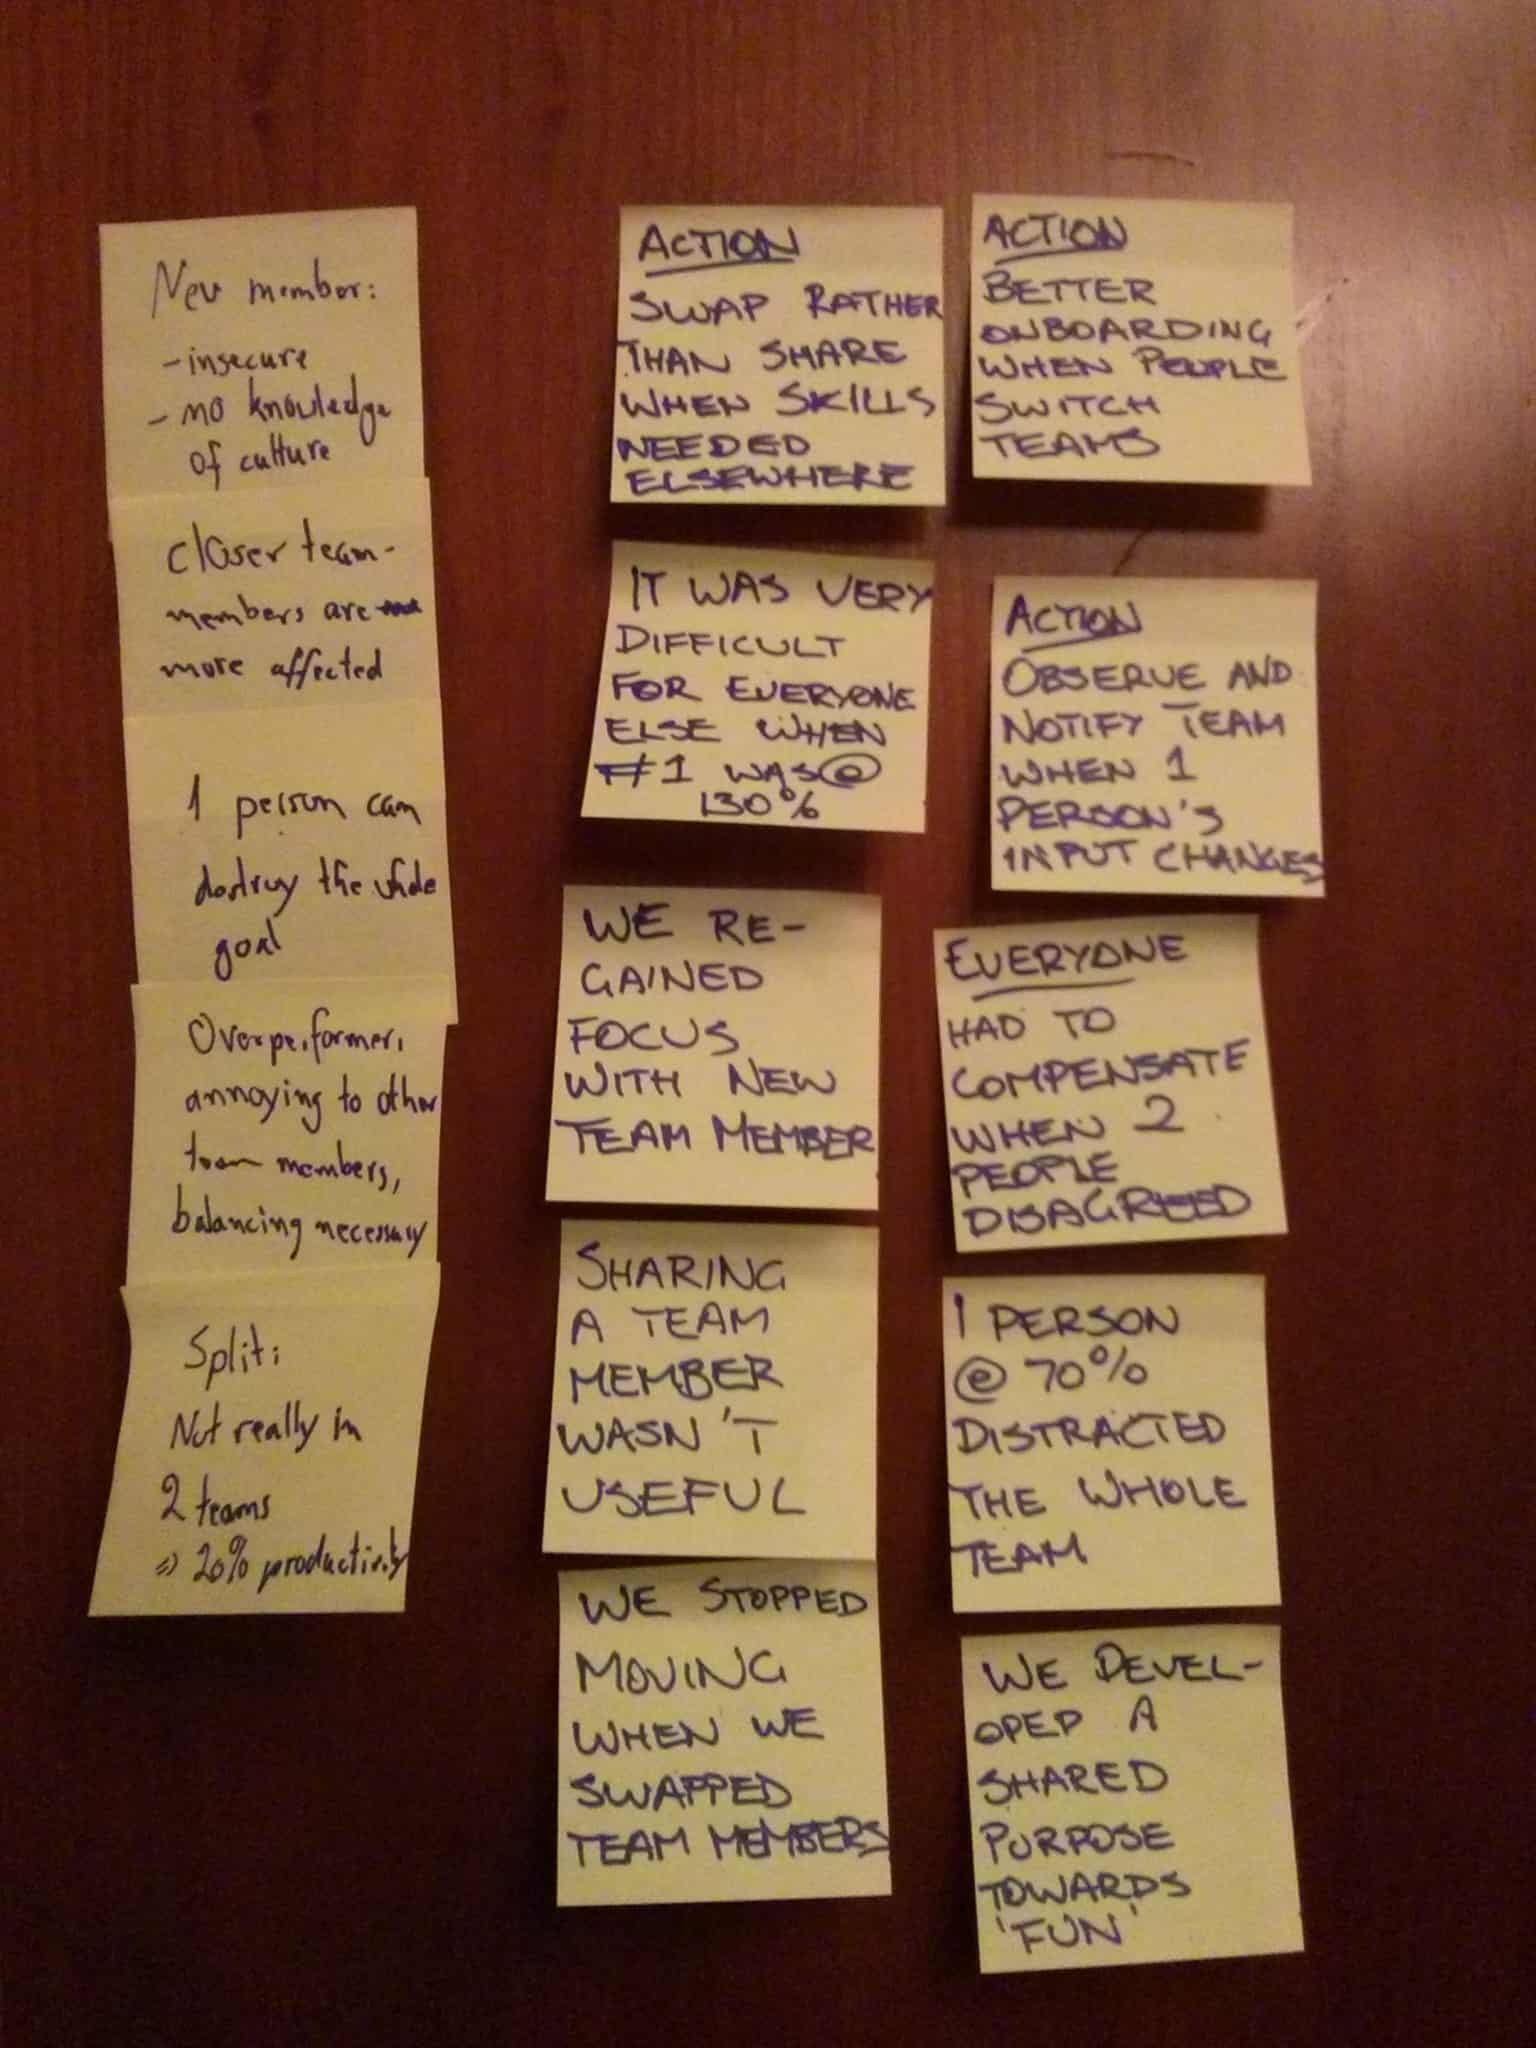 New member:
- insecure
- no knowledge
of culture
closer team-
members are
more affected
1 person can
destroy the whole
goal
Overperformer:
annoying to other
team members,
balancing necessary
Split:
Not really in
2 teams
=> 20% productivity
ACTION
SWAP RATHER
THAN SHARE
WHEN SKILLS
NEEDED
ELSEWHERE
IT WAS VERY
DIFFICULT
FOR EVERYONE
ELSE WHEN
#1 WAS @
130%
WE RE-
GAINED
FOCUS
WITH NEW
TEAM MEMBER
SHARING
A TEAM
MEMBER
WASN'T
USEFUL
WE STOPPED
MOVING
WHEN WE
SWAPPED
TEAM MEMBERS
ACTION
BETTER
ONBOARDING
WHEN PEOPLE
SWITCH
TEAMS
ACTION
OBSERVE AND
NOTIFY TEAM
WHEN 1
PERSON'S
INPUT CHANGES
EVERYONE
HAD TO
COMPENSATE
WHEN 2
PEOPLE
DISAGREED
1 PERSON
@ 70%
DISTRACTED
THE WHOLE
TEAM
WE DEVEL-
OPED A
SHARED
PURPOSE
TOWARDS
'FUN'